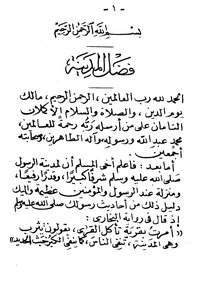 - ١ -
بسم الله الرحمن الرحيم
فضل المدينة
الحمد لله رب العالمين ، الرحمن الرحيم ، مالك
يوم الدين ، والصلاة والسلام الأكملان
التامان على من أرسله ربه رحمة للعالمين ،
محمد عبد الله ورسوله وآله الطاهرين ، وصحابته
أجمعين .
أما بعد : فاعلم أخي المسلم أن لمدينة الرسول
صلى الله عليه وسلم شرفا كبيرا ، وقدرا رفيعا ،
ومنزلة عند الرسول والمؤمنين عظيمة وإليك
دليل ذلك من أحاديث رسولك صلى الله عليه وسلم
إذ قال في رواية البخاري :
« أمرت بقرية تأكل القرى ، يقولون يثرب
وهي المدينة ، تنفي الناس ، كما ينفي الكير خبث الحديد »